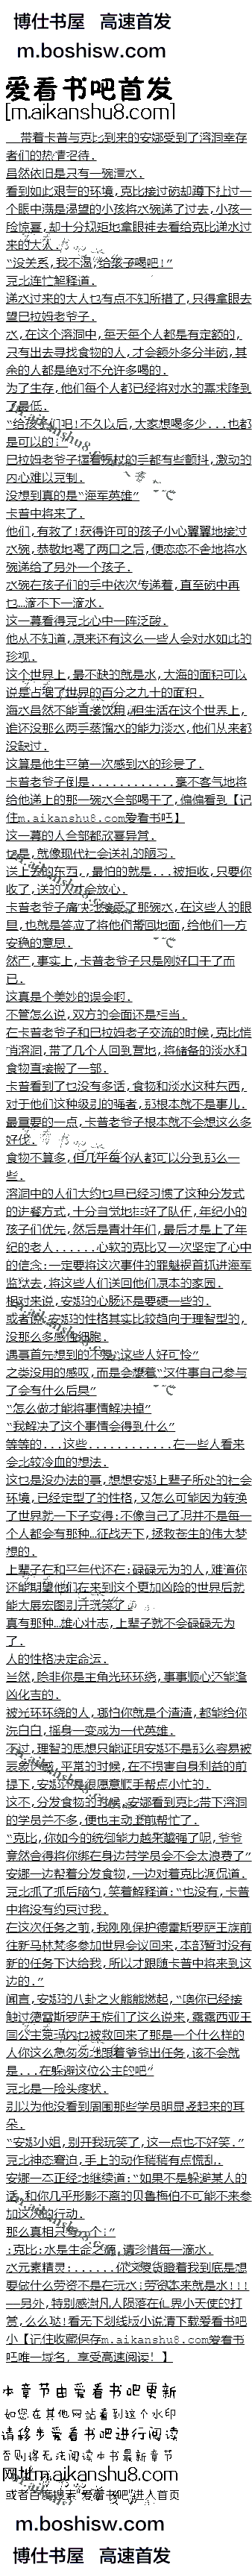 博仕书屋 高速首发
m.boshisw.com
爱看书吧首发
[m.aikanshu8.com]
带着卡普与克比到来的安娜受到了溶洞幸存
者们的热情招待.
虽然依旧是只有一碗清水.
看到如此艰苦的环境,克比接过碗却蹲下扎过一
个眼中满是渴望的小孩将水碗递了过去,小孩一
脸惊喜,却十分规矩地拿眼神去看给克比递水过
来的大人.
“没关系,我不渴,给孩子喝吧!”
克比连忙解释道.
递水过来的大人也有点不知所措了,只得拿眼去
望巴拉姆老爷子.
水,在这个溶洞中,每天每个人都是有定额的,
只有出去寻找食物的人,才会额外多分半碗,其
余的人都是绝对不允许多喝的.
为了生存,他们每个人都已经将对水的需求降到
了最低.
“给孩子们吧!不久以后,大家想喝多少...也都
是可以的!”
巴拉姆老爷子握着拐杖的手都有些颤抖,激动的
内心难以克制.
没想到真的是“海军英雄”
卡普中将来了.
他们,有救了!获得许可的孩子小心翼翼地接过
水碗,恭敬地喝了两口之后,便恋恋不舍地将水
碗递给了另外一个孩子.
水碗在孩子们的手中依次传递着,直至碗中再
也...滴不下一滴水.
这一幕看得克比心中一阵泛酸.
他从不知道,原来还有这么一些人会对水如此的
珍视.
这个世界上,最不缺的就是水,大海的面积可以
说是占据了世界的百分之九十的面积.
海水虽然不能直接饮用,但生活在这个世界上,
谁还没那么两手蒸馏水的能力淡水,他们从来都
没缺过.
这算是他生平第一次感到水的珍贵了.
卡普老爷子倒是............毫不客气地将
给他递上的那一碗水全部喝干了,偏偏看到【记
住m.aikanshu8.com爱看书吧】
这一幕的人全部都欣喜异常.
于是,就像现代社会送礼的陋习.
送上去的东西,最怕的就是...被拒收,只要你
收了,送的人才会放心.
卡普老爷子痛快地接受了那碗水,在这些人的眼
里,也就是答应了将他们带回地面,给他们一方
安稳的意思.
然而,事实上,卡普老爷子只是刚好口干了而
已.
这真是个美妙的误会啊.
不管怎么说,双方的会面还是相当.
在卡普老爷子和巴拉姆老子交流的时候,克比悄
悄溶洞,带了几个人回到营地,将储备的淡水和
食物直接搬了一部.
卡普看到了也没有多话,食物和淡水这种东西,
对于他们这种级别的强者,那根本就不是事儿.
最重要的一点,卡普老爷子根本就不会想这么多
好伐.
食物不算多,但几乎每个人都可以分到那么一
些.
溶洞中的人们大约也早已经习惯了这种分发式
的进餐方式,十分自觉地排好了队伍,年纪小的
孩子们优先,然后是青壮年们,最后才是上了年
纪的老人......心软的克比又一次坚定了心中
的信念:一定要将这次事件的罪魁祸首抓进海军
监狱去,将这些人们送回他们原本的家园.
相对来说,安娜的心肠还是要硬一些的.
或者说,安娜的性格其实比较趋向于理智型的,
没那么多感性细胞.
遇事首先想到的不是“这些人好可怜”
之类没用的感叹,而是会想着“这件事自己参与
了会有什么后果”
“怎么做才能将事情解决掉”
“我解决了这个事情会得到什么”
等等的...这些............在一些人看来
会比较冷血的想法.
这也是没办法的事,想想安娜上辈子所处的社会
环境,已经定型了的性格,又怎么可能因为转换
了世界就一下子变得:不像自己了呢并不是每一
个人都会有那种...征战天下,拯救苍生的伟大梦
想的.
上辈子在和平年代还在:碌碌无为的人,难道你
还能期望他们在来到这个更加凶险的世界后就
能大展宏图别开玩笑了.
真有那种...雄心壮志,上辈子就不会碌碌无为
了.
人的性格决定命运.
当然,除非你是主角光环环绕,事事顺心还能逢
凶化吉的.
被光环环绕的人,哪怕你就是个渣渣,都能给你
洗白白,摇身一变成为一代英雄.
不过,理智的思想只能证明安娜不是那么容易被
表象所惑,平常的时候,在不损害自身利益的前
提下,安娜还是很愿意贰手帮点小忙的.
这不,分发食物的时候,安娜看到克比带下溶洞
的学员并不多,便也主动上前帮忙了.
“克比,你如今的统御能力越来越强了呢,爷爷
竟然舍得将你绑在身边带学员会不会太浪费了”
安娜一边帮着分发食物,一边对着克比调侃道.
克比抓了抓后脑勺,笑着解释道:“也没有,卡普
中将没有约束过我.
在这次任务之前,我刚刚保护德雷斯罗萨王族前
往新马林梵多参加世界会议回来,本部暂时没有
新的任务下达给我,所以才跟随卡普中将来到这
边的.”
闻言,安娜的八卦之火熊熊燃起,“噢你已经接
触过德雷斯罗萨王族们了这么说来,露露西亚王
国公主克玛内也被救回来了那是一个什么样的
人你这么急匆匆地跟着爷爷出任务,该不会就
是...在躲避这位公主的吧”
克比是一脸头疼状.
别以为他没看到周围那些学员明显竖起来的耳
朵.
“安娜小姐,别开我玩笑了,这一点也不好笑.”
克比神态窘迫,手上的动作稍稍有点慌乱.
安娜一本正经地继续道:“如果不是躲避某人的
话,和你几乎形影不离的贝鲁梅伯不可能不来参
加这次的行动.
那么真相只有一个!”
:克比:水是生命之源,请珍惜每一滴水.
水元素精灵:......你这家伙瞪着我到底是想
要做什么劳资不是在玩水!劳资本来就是水!!!
——另外,特别感谢凡人陨落在仙界小天使的打
赏,么么哒!看无下划线版小说请下载爱看书吧
小【记住收藏保存m.aikanshu8.com爱看书
吧唯一域名，享受高速阅读！】
本章节由爱看书吧更新
如您在其他网站看到这个水印
请移步爱看书吧进行阅读
否则将无法阅读本书最新章节
网址m.aikanshu8.com
或者百度搜索 爱看书吧进入首页
m.boshisw.com
博仕书屋 高速首发